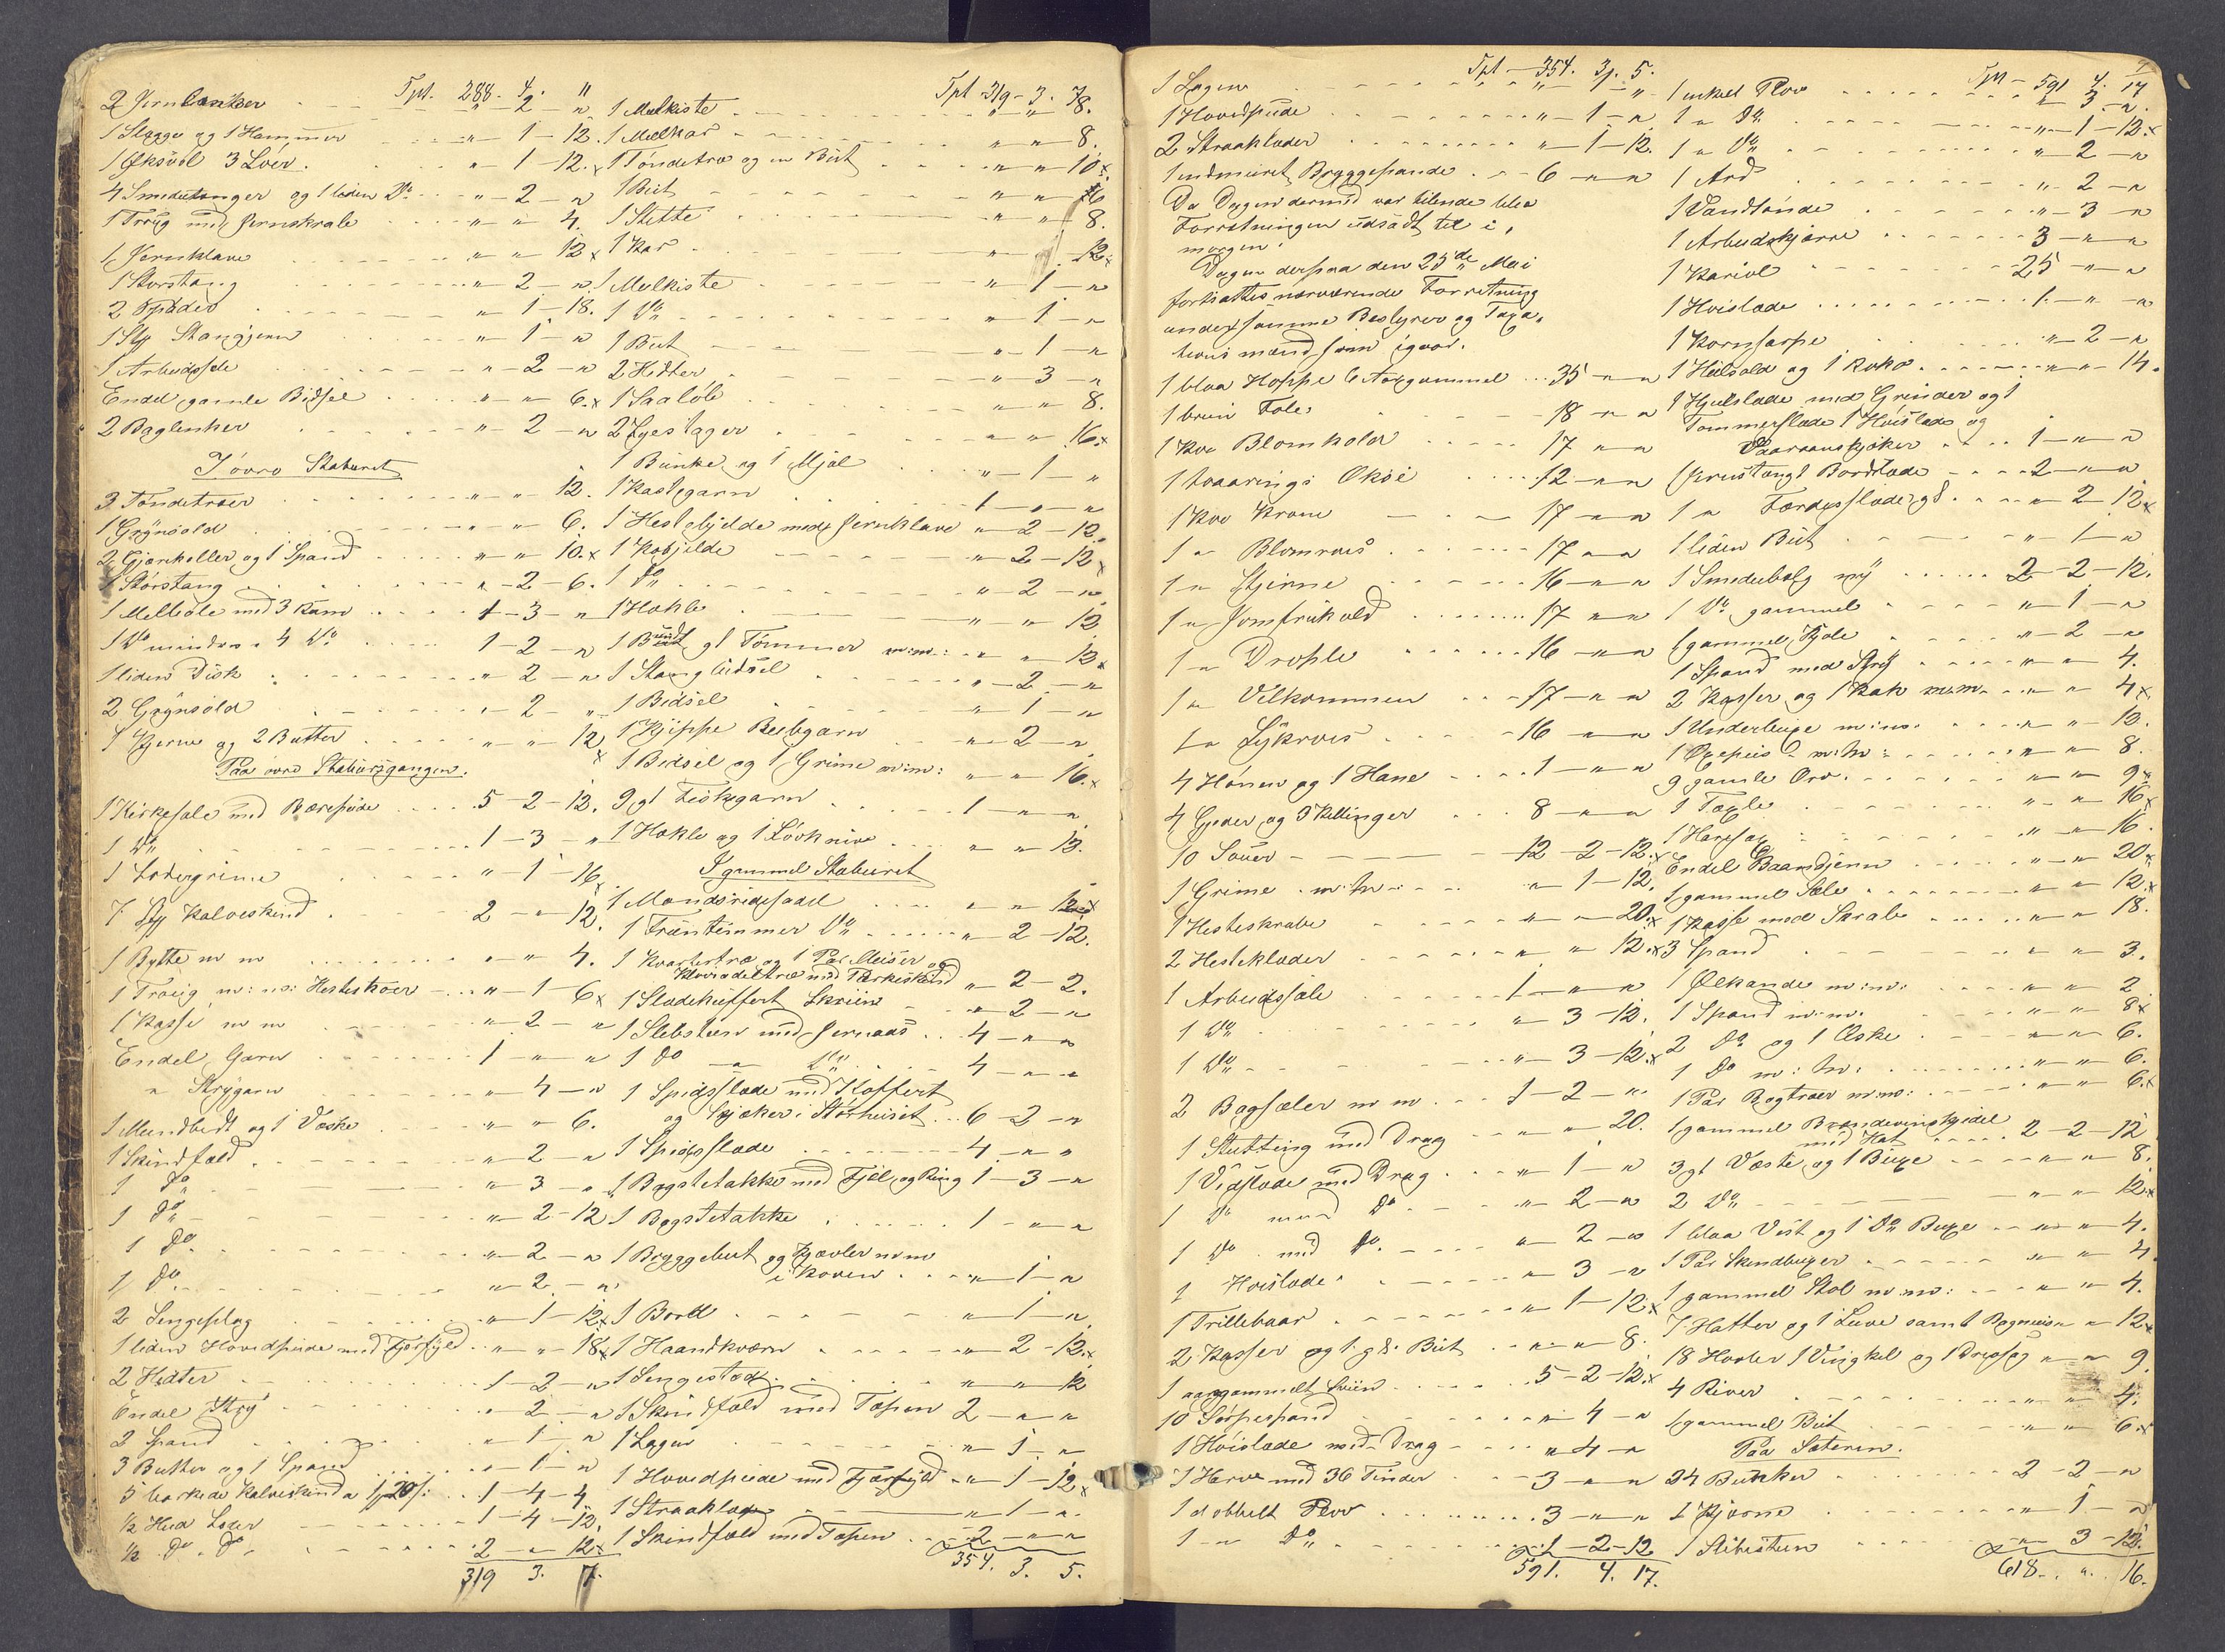 Tpt. 288. 4. "
2 Jernlænker " 2 "
1 Slægge og 1 Hammer " 1 - 12.
1 Øksöl 3 Löer. " 1 - 12. x
4 Smedetænger og 1 liden Do " 2 "
1 Trug med Jernskrab " " 4.
1 Jernklave " " 12 x
1 Storstang " 2 "
2 Spader " 1 - 18.
1 Stk Stangjern " 1 "
1 Arbeidssele " 2 "
Endel gamle Bidsel " " 6. x
2 Baglenker " 2 "
I övre Staburet
3 Töndetræer " " 12.
1 Grynsold " " 6.
2 Gjærholler og 1 Spand " " 10. x
1 Störstang " 2 - 6.
1 Melböle med 3 Rum 1 - 3 "
1 Do mindre " 4 Do 1 - 2 "
1 liden Disk " 2 "
2 Grynsold " 2 "
1 Kjerne og 2 Butter " " 12 x
Paa övre Stabursgangen.
1 Kirkesele med Bærepude 5 - 2 - 12.
1 Do 1 - 3 "
1 Lodergrime " 1 - 16 x
7 Stk Kalveskind 2 " 12.
1 Bytte m m " " 4.
1 Traug m: m: Hesteskoer " 1 - 6 x
1 Kasse m m " 2 "
Endel Garn 1 " "
" Strygarn " 4 "
1 Mundbidt og 1 Væske " " 6.
1 Skindfeld " 2 "
1 Do " 3 "
1 Do " 2 - 12
1 Do " 2 "
1 Do " 2 "
2 Sengeplag " 1 - 12 x
1 liden Hovedpude med Fjærfyld " " 18 x
2 Hidter 1 - 2 "
Endel Stry " 2 "
2 Spand " 1 "
3 Butter og 1 Spand " 1 "
5 barkede Kalveskind a 1 20 /: 1 - 4 - 4
1/2 Hud Læder 1 - 4 - 12.
1/2 Do Do 2 " 12 x
319 3. 7.
Tpt 319 - 3. 7
1 Melkiste " " 8.
1 Melkar " " 8.
1 Töndetræ og en But " " 10 x
1 But " " 16
1 Stette " " 8.
1 Kar " " 12 x
1 Melkiste " 1 "
1 Do " 1 "
1 But " 1 "
2 Hidter " 3 "
1 Saalöb " " 8.
2 Eyestager " " 16. x
1 Bunke og 1 Mjöl " 1 "
1 Kastegarn 1 " "
1 Hestebjelde med Jernklave " 2 - 12.
1 Kobjelde " 2 - 12 x
1 Do " 2 "
1 Hakle " " 12
1 Bundt gl Tömmer m:m: " " 12 x
1 Stangbidsel " 2 "
1 Bidsel " 1 "
1 Kjippe Beebgarn " 2 "
1 Bidsel og 1 Grime m:m: " " 16. x
9 gl Fiskegarn 1 " "
1 Hakle og 1 Lövkniv " " 12.
I gammel Staburet
1 Mandsridesadel " " 12 x
1 Fruentimmer Do " 2 - 12.
1 Kvartertræ og 1 Par Meiser og
Klovsadeltræ med Færkeskind " 2 - 2.
1 Sladekuffert Skriin " 2 "
1 Slebsteen med Jernaas 4 " "
1 Do " Do 4 " "
1 Spidsslæde med Koffert
og Skjæker i Störhuset 6 - 2 "
1 Spidsslæde 4 " "
1 Bagstetakke med Fjæl og Ring 1 - 3 "
1 Bagstetakke 1 " "
1 Bryggebut og Kjævler m m
i Koven " 1 "
1 Bord " 1 "
1 Haandkværn " 2 - 12. x
1 Sengested " " 12
1 Skindfæld med Tæpen 2 " "
1 Lagen " 1 "
1 Hovedpude med Fjærfyld " 1 - 12 x
1 Straaklæde " 1 "
1 Skindfæld med Tæpen 2 " "
354. 3. 5.
Tpt - 354. 3. 5.
1 Lagen " 1 "
1 Hovedpude " 1 "
2 Straaklæder " 1 - 12.
1 indmuret Bryggepande 6 " "
Da Dagen dermed var tilende blev
Forretningen udsadt til i
morgen.
Dagen derpaa den 25de Mai
fortsattes nærværende Forretning
under samme Bestyrer og Taxa-
tionsmænd som igaar.
1 blaa Hoppe 6 Aar gammel 35 " "
1 brun Fole 18 " "
1 Ko Blomkold 17 " "
1 toaarings Okse 12 " "
1 Ko Krone 17 " "
1 " Blomroes 17 " "
1 " Stjerne 16 " "
1 " Jomfrukold 17 " "
1 " Drople 16 " "
1 " Velkommen 17 " "
1 " Lykroes 16 " "
4 Höner og 1 Hane 1 " "
4 Gjeder og 3 Killinger 8 " "
10 Souer 12 - 2 - 12. x
1 Grime m:m: " 1 - 12.
1 Hesteskrabe " " 20. x
2 Hesteklæder " " 12. x
1 Arbeidssele 1 " "
1 Do " 3 - 12.
1 Do " 3 - 12. x
2 Bagsæler m m 1 - 2 "
1 Stutting med Drag " " 20.
1 Vedslæde med Drag " 1 "
1 Do med Do " 2 "
1 Do med Do " 2 "
1 Hoislæde " 3 "
1 Trillebaar " 1 - 12. x
2 Kasser og 1 gl. But " " 8.
1 aargammelt Sviin 5 - 2 - 12. x
10 Sörpespand " 4 "
1 Höislæde med Drag " 4 "
1 Harve med 36 Tinder 3 " "
1 dobbelt Plov 3 " "
1 " Do 1 - 2 - 12
591. 4. 17.
Tpt - 591 4. 17
1 enkel Plov " 3 "
1 " Do " 1 - 12. x
1 " Do " 2 "
1 Ard " 2 "
1 Vandtönde " 3 "
1 Arbeidskjærre 3 " "
1 Kariol 25 " "
1 Hoislæde 1 " "
1 Kornharpe " 2 "
1 Hulsold og 1 Koko " " 14.
1 Hjulslæde med Grinder og 1
Tømmerslæde 1 Höislæde og
Vaaraanskjæker 1 " "
1 Jernstang 1 Bordslæde 2 " "
1 " Færdesslæde gl. " 2 - 12 x
1 liden But " 1 "
1 Smedebælg ny 2 - 2 - 12.
1 Do gammel " 1 "
1 gammel Kjole " 2 "
1 Spand med Stry " " 4.
2 Kasser og 1 Kak m:m. " " 4 x
1 Underbuxe m:m: " " 12.
1 Oxepiis m:m: " " 8.
9 gamle Orv. " " 9 x
1 Tøxle " " 16 x
1 Harpsax " " 16.
Endel Baandjern " " 20 x
1 gammel Sæle " " 12. x
1 Kasse med Skrab " " 18.
3 Spand " " 3.
1 Ølkande m:m: " " 2
1 Spand m:m. " " 8 x
2 Do og 1 Æske " " 6.
1 Do m:m: " " 6.
1 Par Bogtræer m:m: " " 6. x
1 gammel Brændevinskjedel
med Hat 2 - 2 - 12
3 gl Væste og 1 Buxe " " 8.
2 Do " " 12 x
1 blaa Vest og 1 Do Buxe " " 4.
1 Par Skindbuxer " " 4.
1 gammel Stol m:m: " " 4.
7 Hatter og 1 Luve samt 1 Bogmeis " " 12 x
18 Hovler 1 Vingkel og 1 Drejsag " " 9.
4 River " " 4.
1 gammel But " " 6. x
Paa Sæteren.
24 Bukker 2 - 2 "
1 Kjærne " 1 "
1 Slibesteen " 3 - 12.
618. " 16.